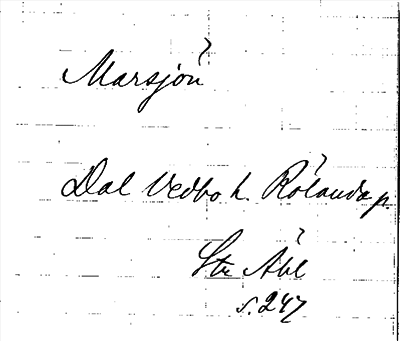 Marsjön
Dal Vedbo h. Rölanda p.
Str Åbl
s. 247